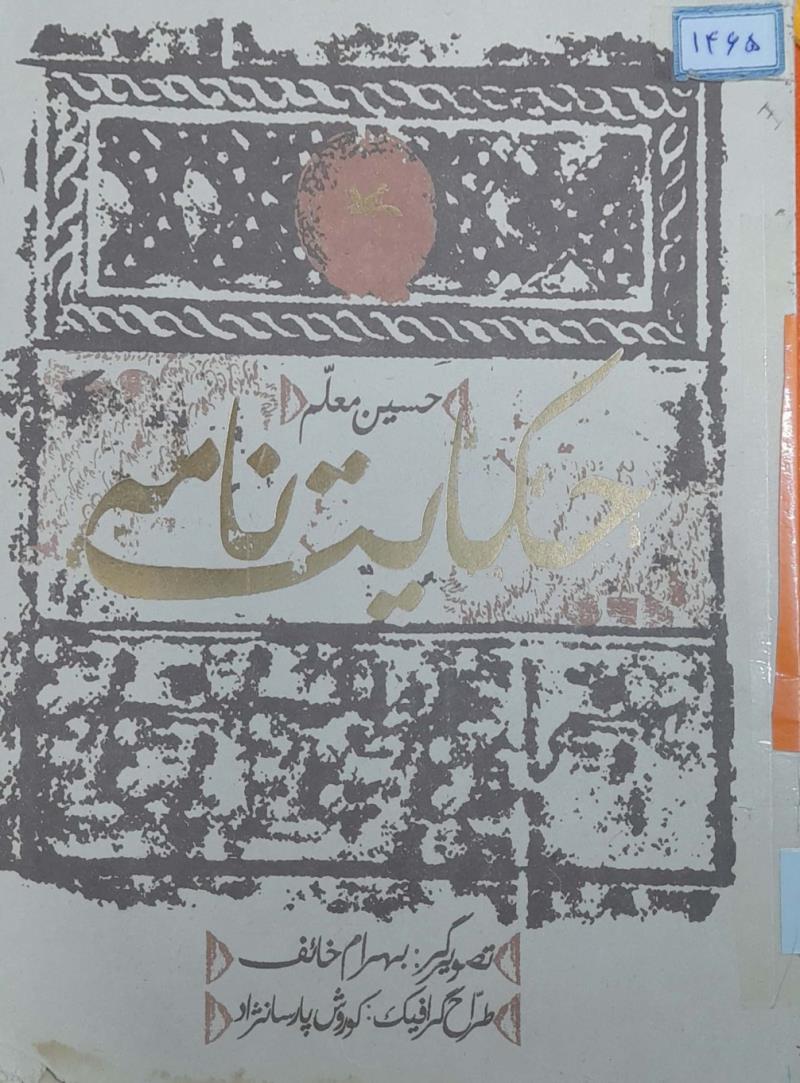 ۱۴۶۵
حسین معلّم
حکایت نامه
تصویرگر: بهرام خائف
طرّاح گرافیک: کوروش پارسانژاد